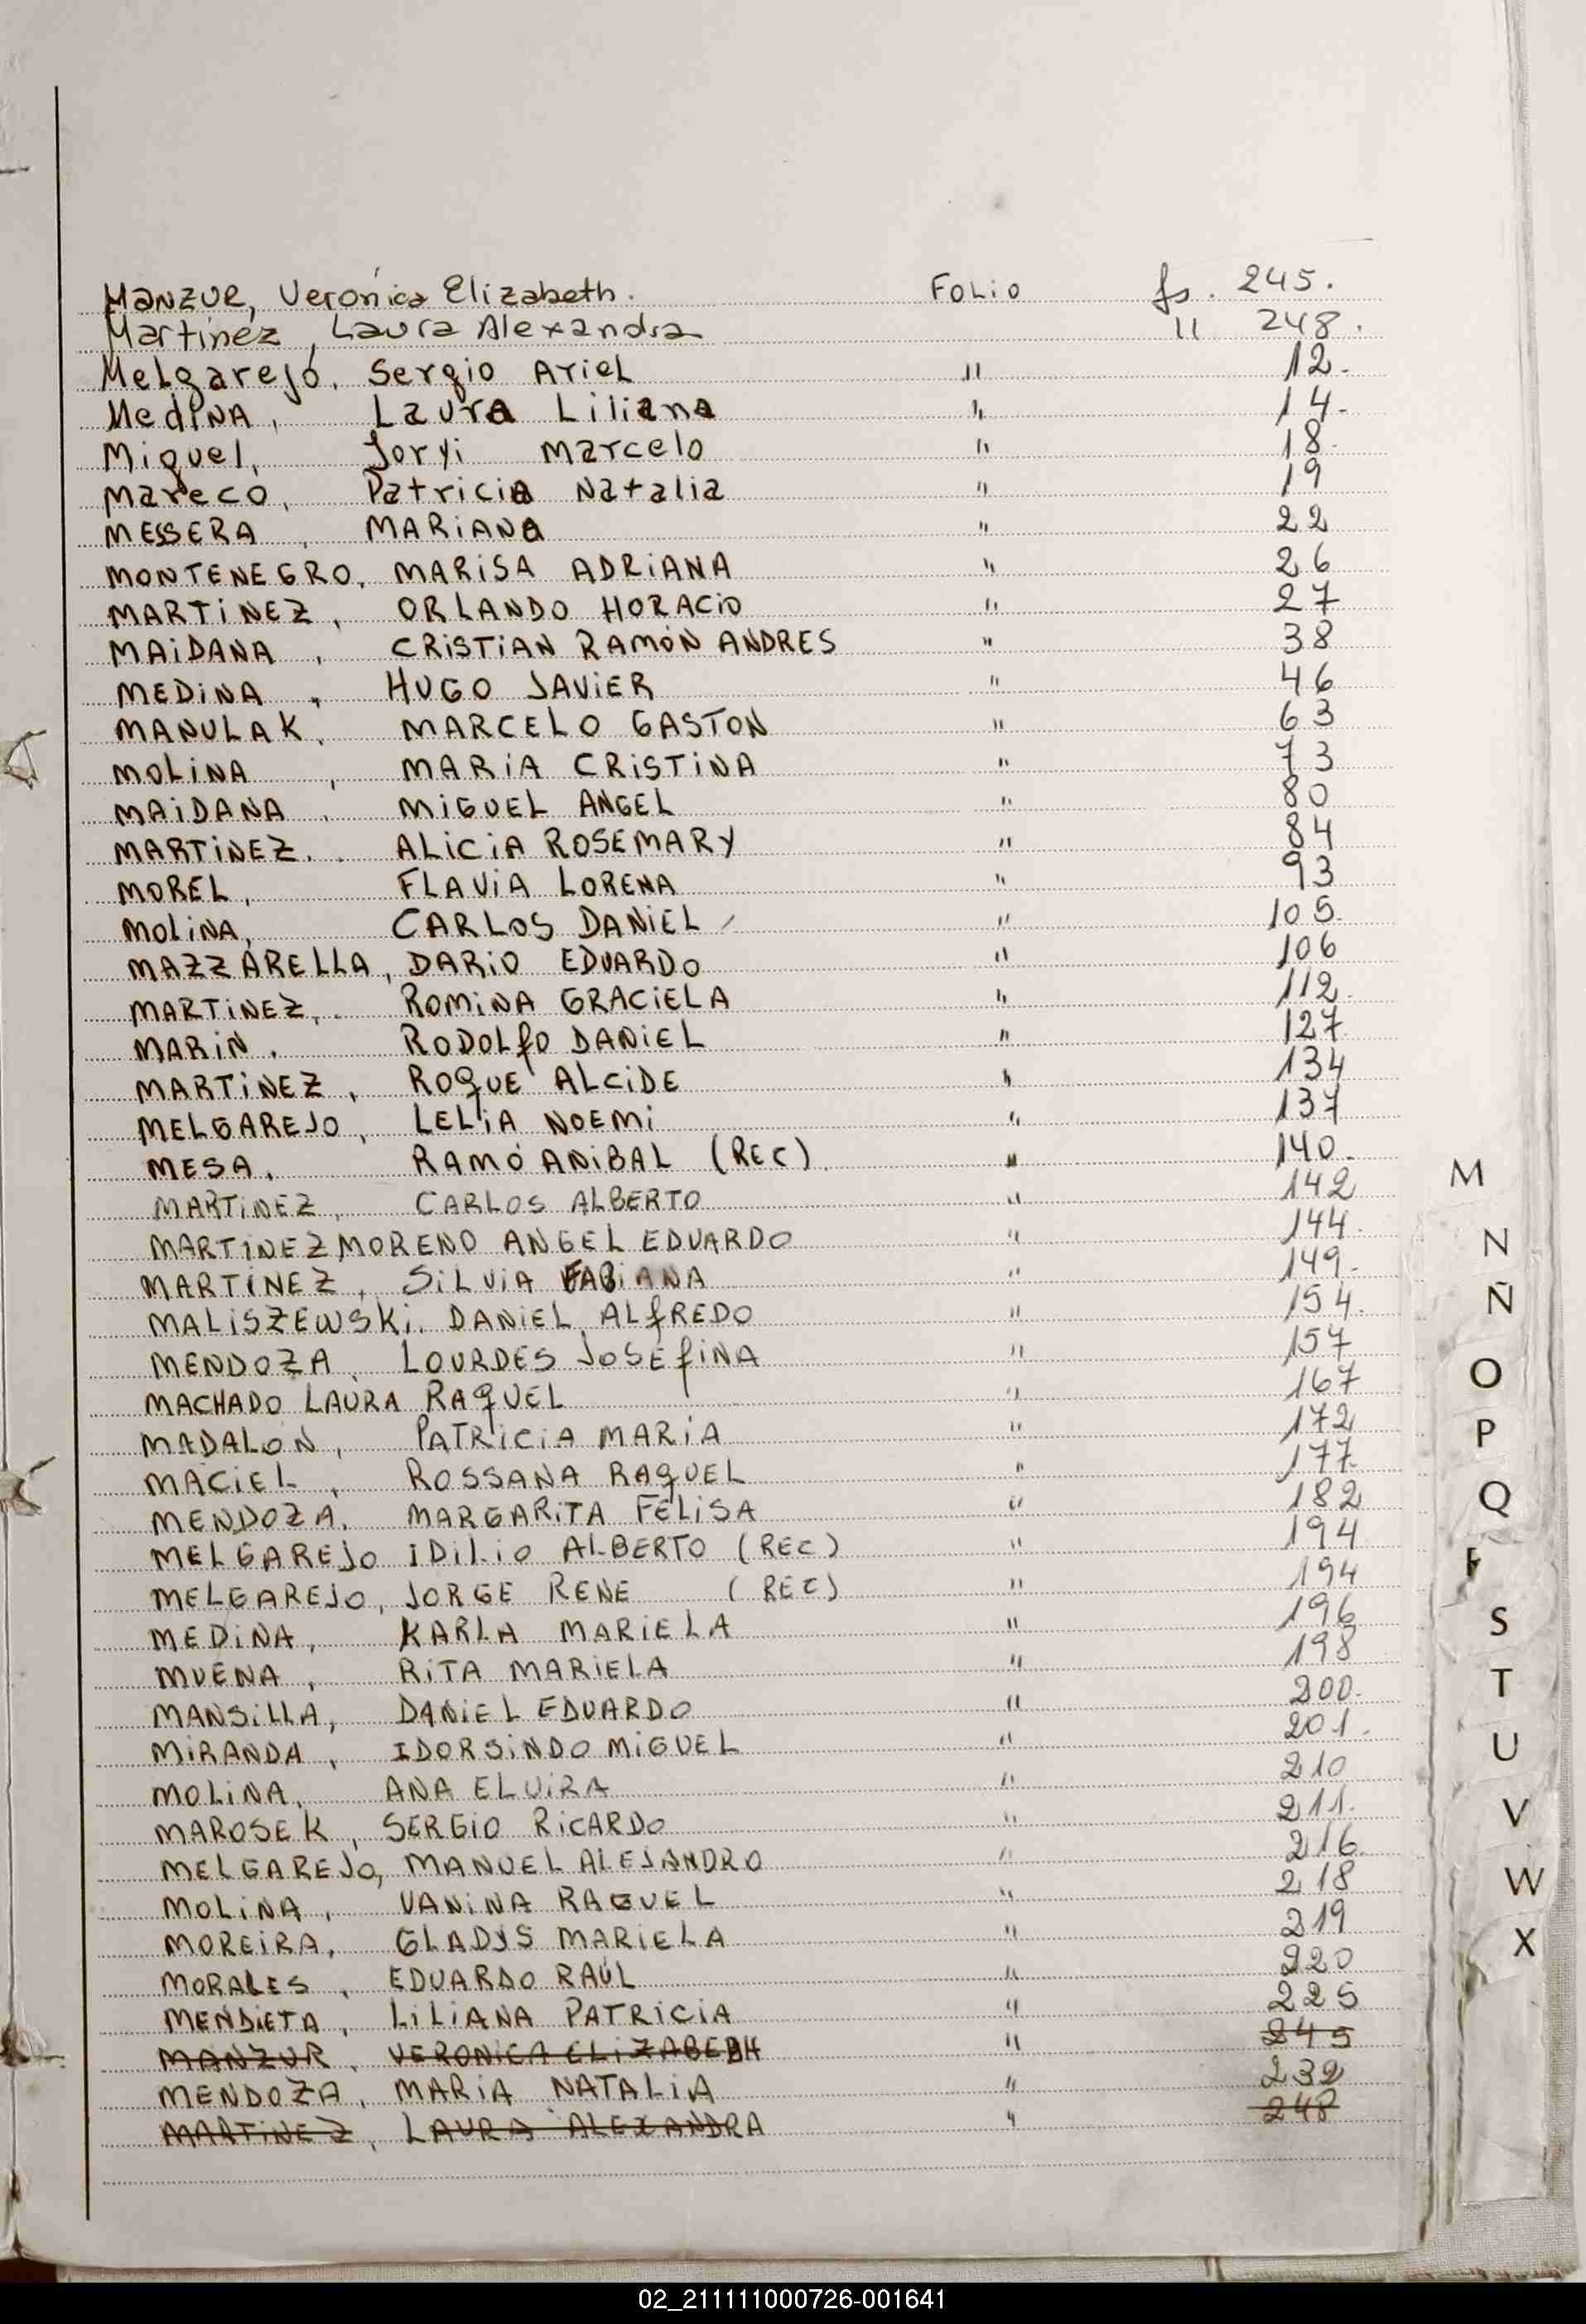 Manzur, Veronica Elizabeth. Folio fs. 245.
Martinez, Laura Alexandra " 248.
Melgarejo, Sergio Ariel " 12.
Medina, Laura Liliana " 14.
Miguel, Joryi Marcelo " 18.
Mareco, Patricia Natalia " 19
MESSERA, MARIANA " 22
MONTENEGRO, MARISA ADRIANA " 26
MARTINEZ, ORLANDO HORACIO " 27
MAIDANA, CRISTIAN RAMÓN ANDRES " 38
MEDINA, HUGO JAVIER " 46
MANULAK, MARCELO GASTON " 63
MOLINA, MARIA CRISTINA " 73
MAIDANA, MIGUEL ANGEL " 80
MARTINEZ, ALICIA ROSEMARY " 84
MOREL, FLAVIA LORENA " 93
MOLINA, CARLOS DANIEL " 105.
MAZZARELLA, DARIO EDUARDO " 106
MARTINEZ, ROMINA GRACIELA " 112.
MARIN, RODOLFO DANIEL " 127.
MARTINEZ, ROQUE ALCIDE " 134
MELGAREJO, LELIA NOEMI " 137
MESA, RAMÓ ANIBAL (REC) " 140.
MARTINEZ, CARLOS ALBERTO " 142
MARTINEZ MORENO ANGEL EDUARDO " 144.
MARTINEZ, SILVIA FABIANA " 149.
MALISZEWSKI, DANIEL ALFREDO " 154.
MENDOZA, LOURDES JOSEFINA " 157
MACHADO LAURA RAQUEL " 167
MADALON, PATRICIA MARIA " 172
MACIEL, ROSSANA RAQUEL " 177.
MENDOZA, MARGARITA FELISA " 182
MELGAREJO IDILIO ALBERTO (REC) " 194
MELGAREJO, JORGE RENE (REC) " 194
MEDINA, KARLA MARIELA " 196
MUENA, RITA MARIELA " 198
MANSILLA, DANIEL EDUARDO " 200.
MIRANDA, IDORSINDO MIGUEL " 201.
MOLINA, ANA ELVIRA " 210
MAROSEK, SERGIO RICARDO " 211.
MELGAREJO, MANUEL ALEJANDRO " 216.
MOLINA, VANINA RAQUEL " 218
MOREIRA, GLADYS MARIELA " 219
MORALES, EDUARDO RAÚL " 220
MENDIETA, LILIANA PATRICIA " 225
MANZUR, VERONICA ELIZABEDH " 245
MENDOZA, MARIA NATALIA " 232
MARTINEZ, LAURA ALEXANDRA " 248
M
N
Ñ
O
P
Q
S
T
U
V
W
X
02_211111000726-001641